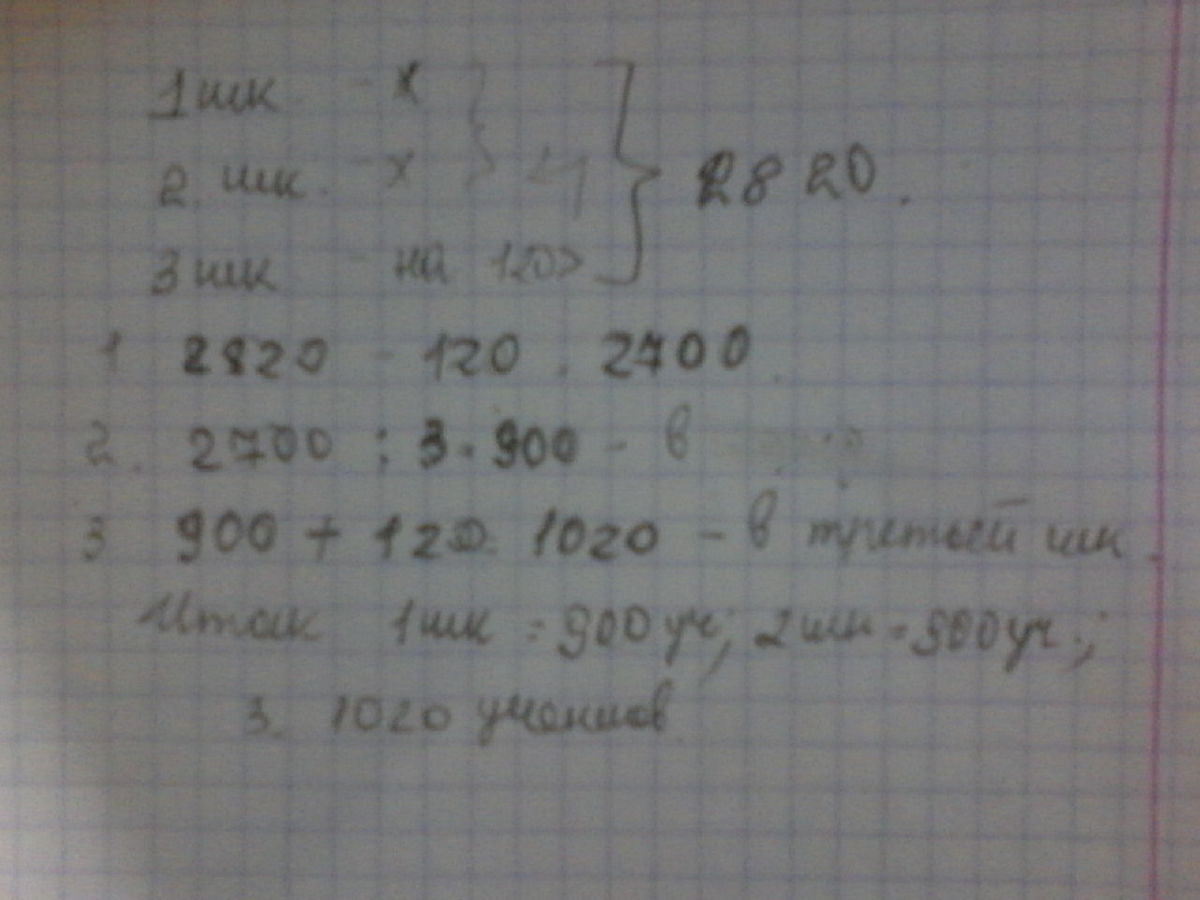 1 шк - x
2. шк. - x
3 шк - на 120>
2820.
1 2820 - 120 . 2700.
2. 2700 : 3 = 900 - в
3 900 + 120 = 1020 - в третьей шк.
Итак 1 шк = 900 уч; 2 шк = 900 уч.;
3. 1020 учеников